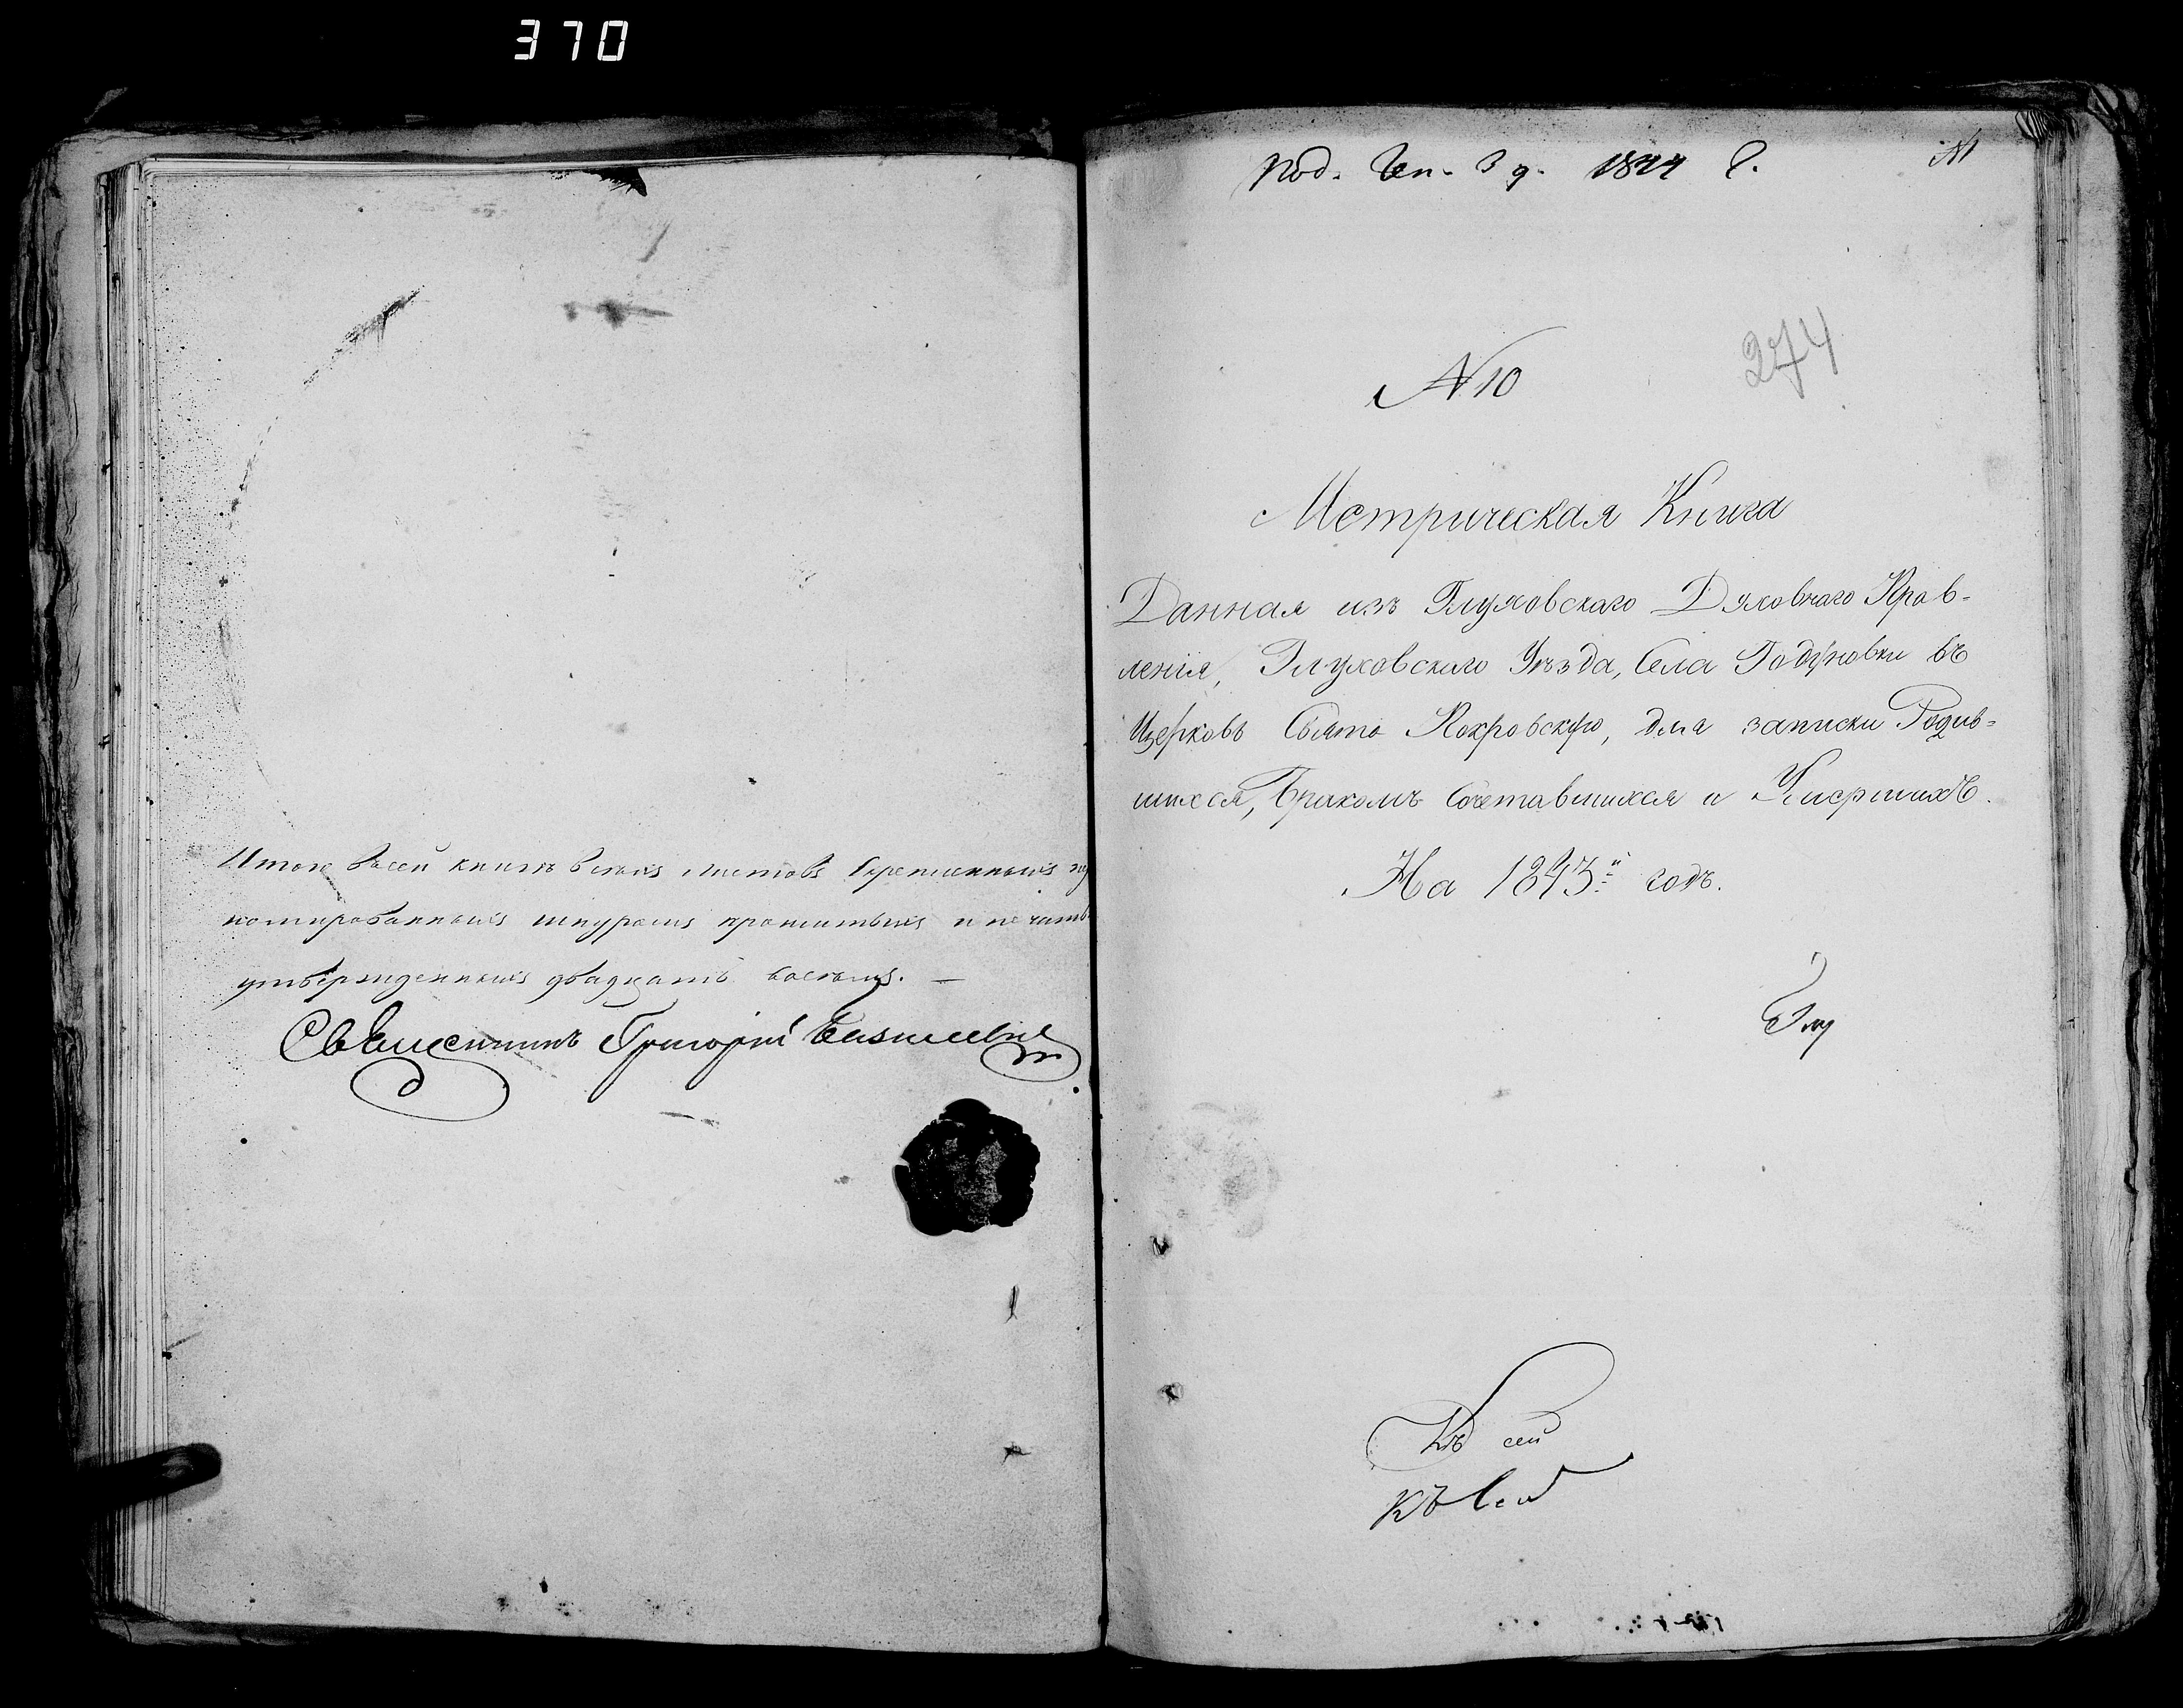 370
Итого в сей книгѣ всѣхъ листовъ скрепленныхъ
номированныхъ шнуромъ прошитыхъ и печатью
утвержденныхъ двадцать восемь. —
Священникъ Григорій
Под. Ген. 3 д. 1844 г.
№ 10
274
Метрическая Книга
Данная изъ Глуховскаго Духовнаго Прав-
ленія, Глуховскаго Уѣзда, Села Годуновки въ
Церковь Свято Покровскую, для записки Родив-
шихся, Бракомъ Сочетавшихся и Умершихъ.
На 1843й годъ.
Глу
Къ сей
Къ сей